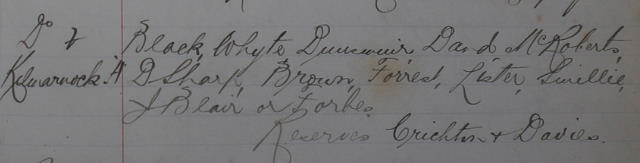 Do v Black, Whyte Dunsmuir, David McRoberts,
Kilmarnock "A" D Sharp, Brown, Forrest, Lister, Smillie,
J Blair or Forbes.
Reserves Crichton & Davies.